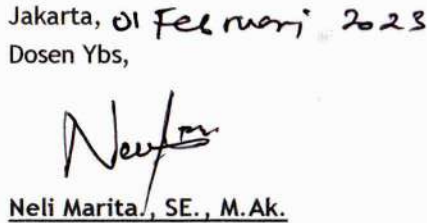 Jakarta, 01 Februari 2023
Dosen Ybs,
Neli Marita, SE., M.Ak.